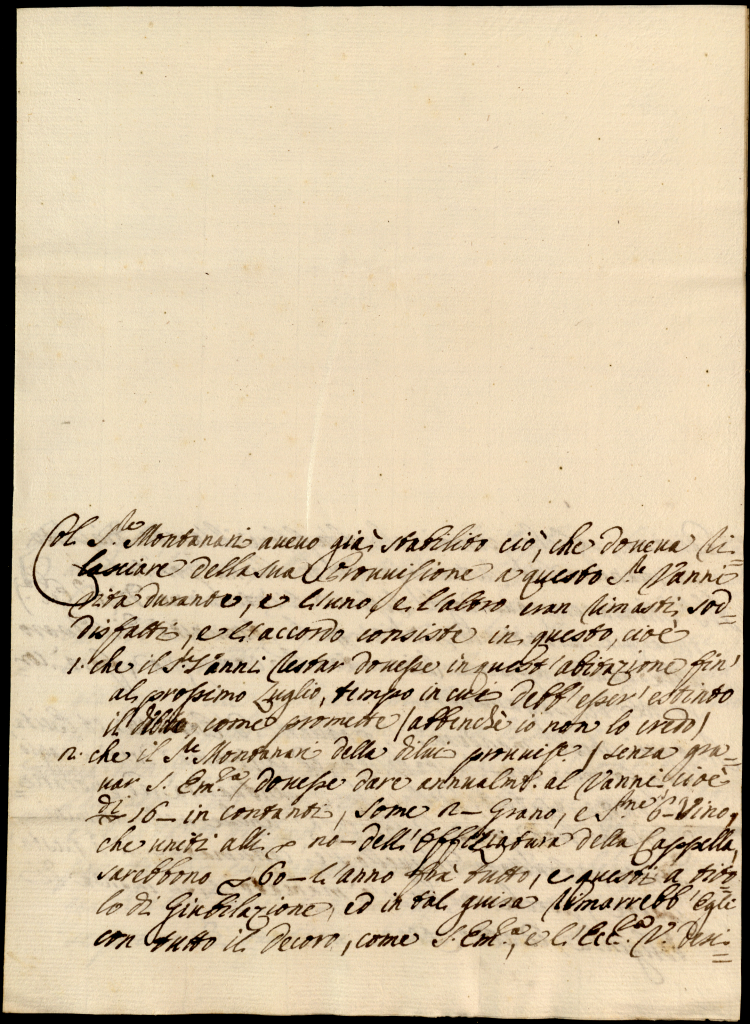 Col S.re Montanari avevo già stabilito ciò, che doveva ri=
lasciare della sua Provvisione a questo S.re Vanni
vita durante, e l'uno, e l'altro eran rimasti sod=
disfatti, e l'accordo consiste in questo, cioè
1. che il S.r Vanni restar dovesse in quest'abitazione fin'
al prossimo Luglio, tempo in cui debb'esser' estinto
il come promette (abbenché io non lo credo)
2. che il S.re Montanari della di lui provvis.e (senza gra=
var S. Em.za) dovesse dare annualm.te al Vanni, cioè
16 in contanti, some 2 Grano, e S.me 6 Vino,
che uniti alli dell'Offiziatura della Cappella,
sarebbono 60 l'anno frà tutto, e questi a tito=
lo di Giubilazione, ed in tal guisa rimarrebb'Egli
con tutto il decoro, come S. Em.za, e l'Ecc.za V. desi=